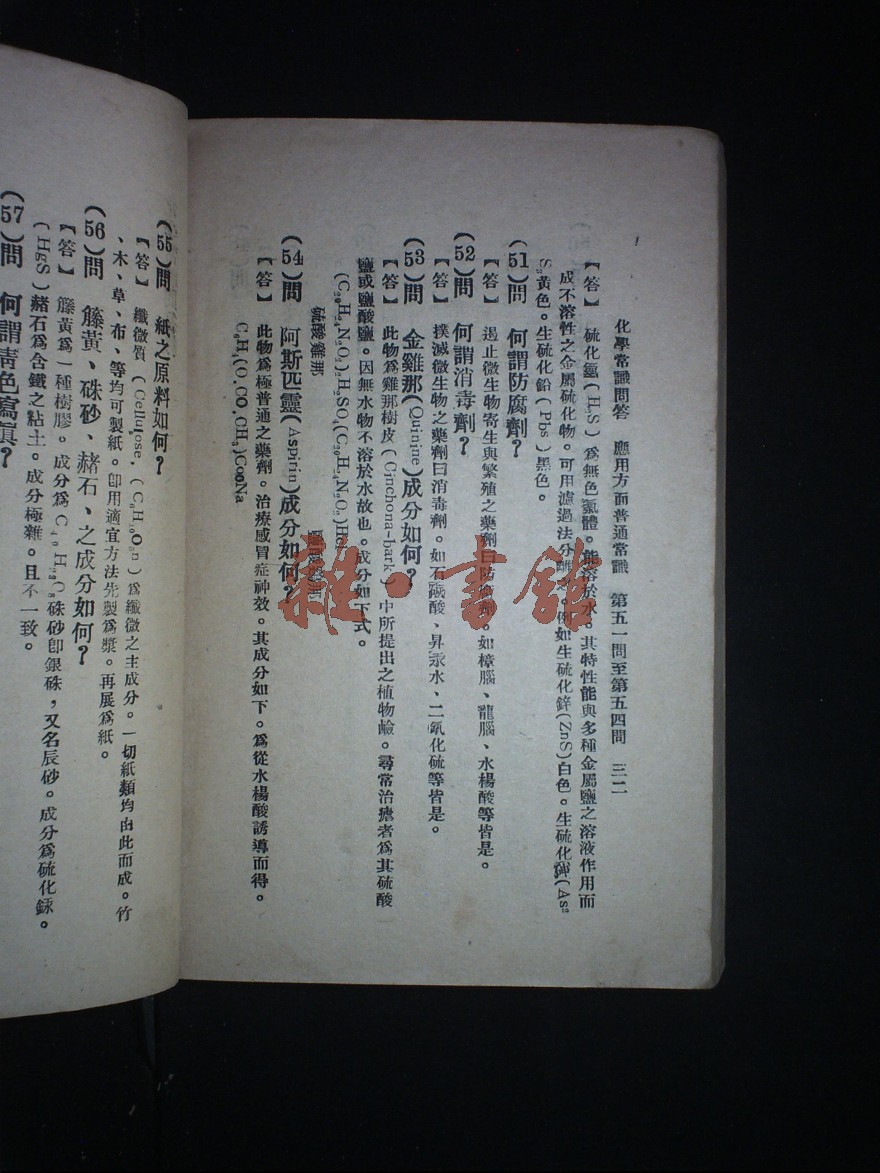 化學常識問答 應用方面普通常識 第五一問至第五四問 三二
【答】硫化氫(H₂S)為無色氣體。能溶於水。其特性能與多種金屬鹽之溶液作用而
成不溶性之金屬硫化物。可用濾過法分離之。例如生硫化鋅(ZnS)白色。生硫化砒(As₂
S₃黃色。生硫化鉛(Pbs)黑色。
(51)問 何謂防腐劑?
【答】遏止微生物寄生與繁殖之藥劑曰防腐劑。如樟腦、龍腦、水楊酸等皆是。
(52)問 何謂消毒劑?
【答】撲滅微生物之藥劑曰消毒劑。如石碳酸、昇汞水、二氧化硫等皆是。
(53)問 金雞那(Quinine)成分如何?
【答】此物為雞那樹皮(Cinchona-bark)中所提出之植物鹼。尋常治瘧者為其硫酸
鹽或鹽酸鹽。因無水物不溶於水故也。成分如下式。
(C₂₀H₂₄N₂O₂)₂H₂SO₄(C₂₀H₂₄N₂O₂)
硫酸雞那
(54)問 阿斯匹靈(Aspirin)成分如何?
【答】此物為極普通之藥劑。治療感冒症神效。其成分如下。為從水楊酸誘導而得。
C₆H₄(O.CO.CH₃)CooNa
(55)問 紙之原料如何?
【答】纖微質(Cellulose,(C₆H₁₀O₅n)為纖微之主成分。一切紙類均由此而成。竹
、木、草、布、等均可製紙。卽用適宜方法先製為漿。再展為紙。
(56)問 籐黃、硃砂、赭石、之成分如何?
【答】籐黃為一種樹膠。成分為 硃砂卽銀硃,又名辰砂。成分為硫化銾。
(HgS)赭石為含鐵之粘土。成分極雜。且不一致。
(57)問 何謂靑色寫眞?
雜·書館